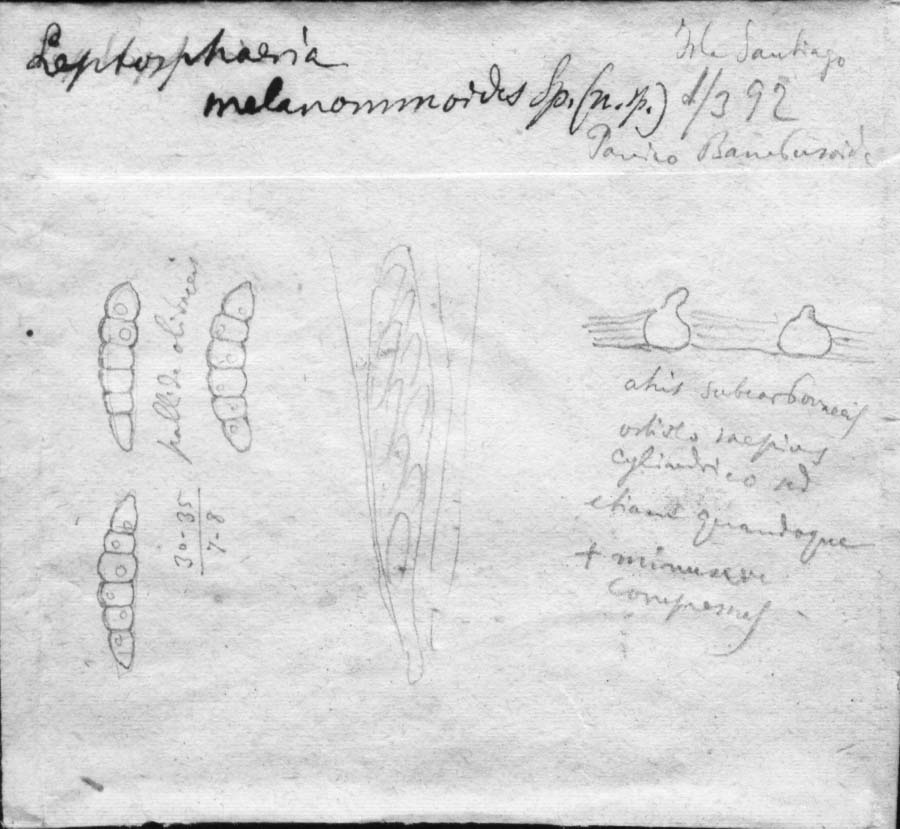 Leptosphaeria
melanommoides Sp. (n. sp.)
Isla Santiago
1/3 92
Panico Bambusoide
pallide olivaceis
30-35
7-8
atris subcarbonaceis
ostiolo saepius
cylindrico sed
etiam quandoque
+ minusve
compresso